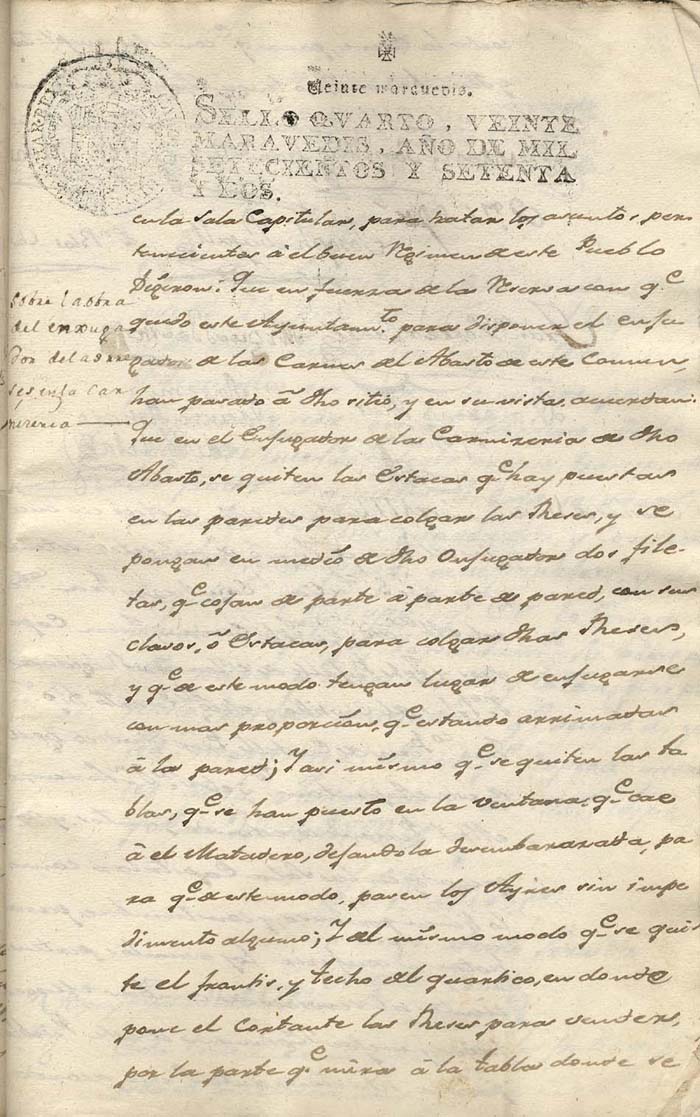 Veinte maravedis.
SELLO QVARTO, VEINTE
MARAVEDIS, AÑO DE MIL
SETECIENTOS Y SETENTA
Y DOS.
en la Sala Capitular, para tratar los asuntos per
tenecientes à el buen Regimen de este Pueblo
Dixeron: Que en fuerza de la Reserva con q.e
quedo este Ayuntam.to para disponer el enju
gador de las Carnes del Abasto de este Comun,
han pasado â dho sitio, y en su vista acuerdan:
Que en el Enjugador de la Carnizeria de dho
Abasto, se quiten las Estacas q.e hay puestas
en las paredes para colgar las Reses, y se
pongan en medio de dho Enjugador dos file-
tas, q.e cojan de parte â parte de pared, con sus
clavos, ô Estacas, para colgar dhas Reses,
y q.e de este modo tengan lugar de enjugarse
con mas proporcion, q.e estando arrimadas
â la pared; Y asi mismo q.e se quiten las ta
blas, q.e se han puesto en la ventana, q.e cae
â el Matadero, dejandola desembarazada, pa
ra q.e de este modo, pasen los Ayres sin impe
dimento alguno; Y del mismo modo q.e se qui
te el frontis, y techo del quartico, en donde
pone el Cortante las Reses para vender,
por la parte q.e mira â la tabla donde se
Sobre la obra
del enxuga
dor de las
reses en la Car
niceria